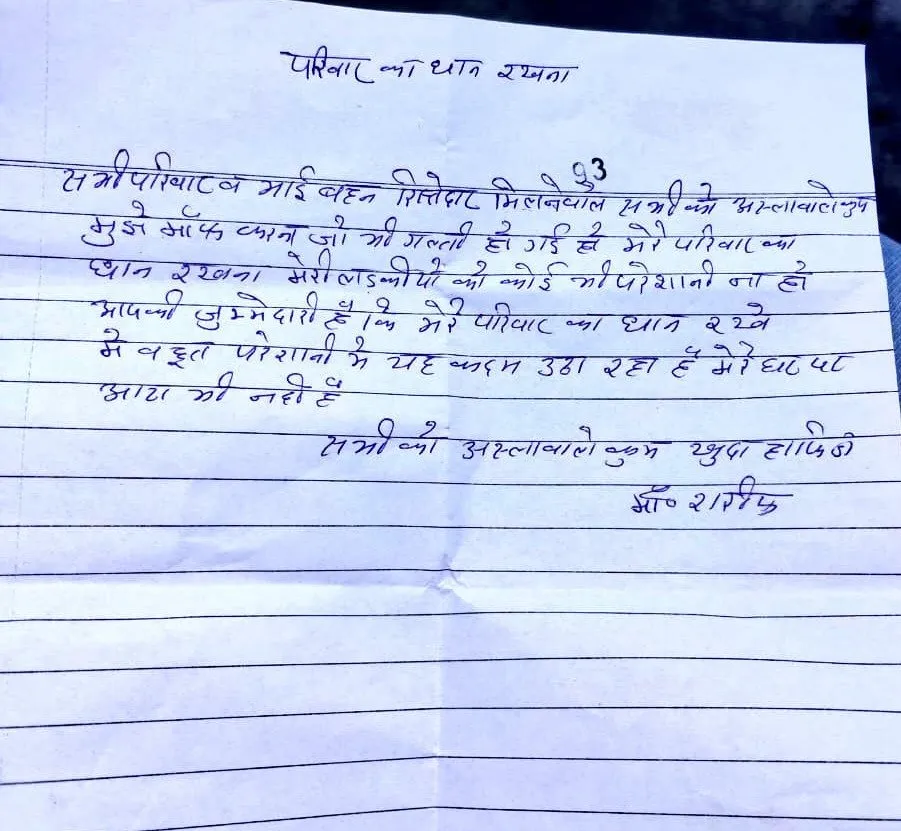 परिवार का धान रखना
93
सभी परिवार व भाई बहन रिस्तेदार मिलनेवाले सभी को अस्लावालेकुम
मुझे मॉफ करना जो भी गल्ती हो गई हो मेरे परिवार का
धान रखना मेरी लडकीयो को कोई भी परेशानी ना हो
आपकी जुम्मेदारी है कि मेरे परिवार का धान रखे
मे बहूत परेशानी मे यह कदम उठा रहा हूँ मेरे घर पर
आटा भी नही है
सभी को अस्लावाले कुम खुदा हाफिज
मॉ० शरीफ